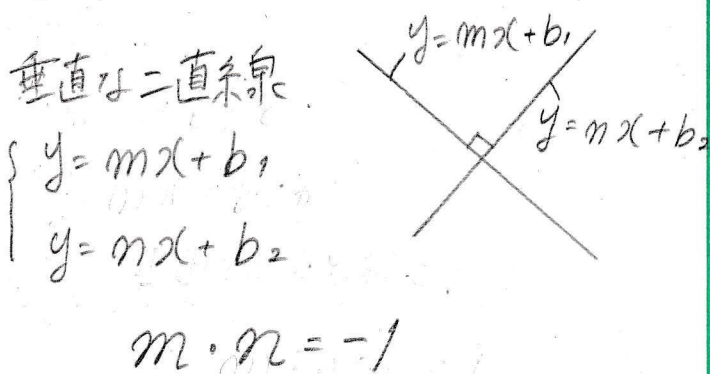 垂直な二直線
y=mx+b₁
y=nx+b₂
m・n=-1
y=mx+b₁
y=nx+b₂